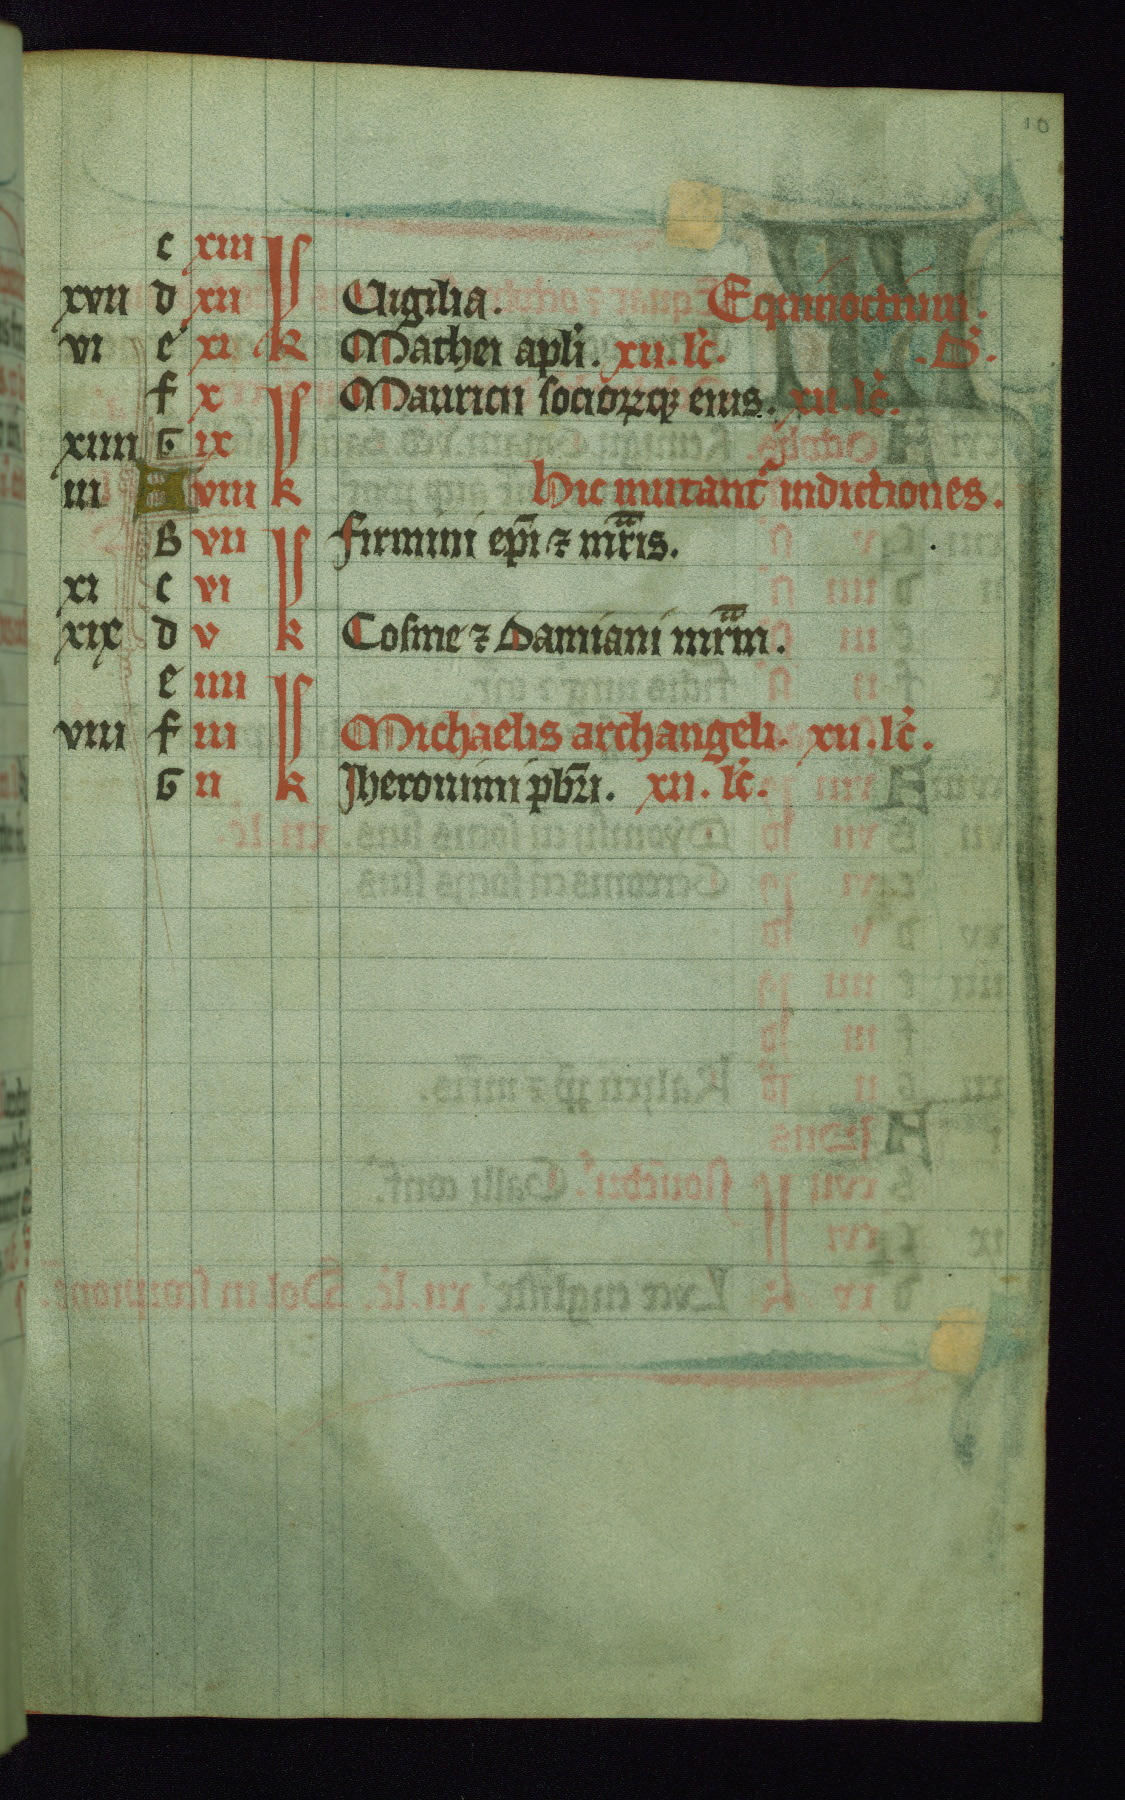 10
c xiii
xvii d xii Uigilia. Equinoctium.
vi e xi k Mathei apli. xii. lc̄. .D̄.
f x Mauricii socioꝝqꝫ eius. xii. lc̄.
xiiii G ix
iii A viii k Hic mutant᷑ indictiones.
B vii firmini epī ⁊ mr̄is.
xi c vi
xix d v k Cosme ⁊ Damiani mr̄m.
e iiii
viii f iii Michaelis archangeli. xii. lc̄.
G ii k Jheronimi pbr̄i. xii. lc̄.